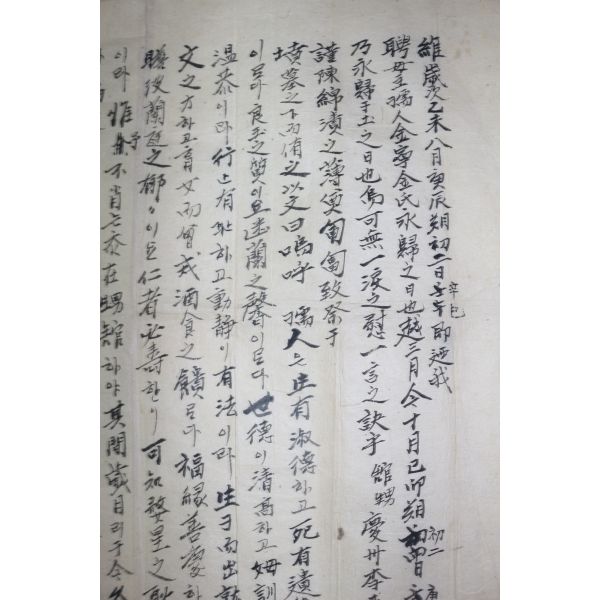 維歲次乙未八月庚辰朔初二日辛巳即廼我
聘母主孺人金寧金氏永歸之日也越三月今十月己卯朔初二
乃永歸于土之日也烏可無一淚之慰一言之訣乎 舘甥慶州李
謹陳綿漬之薄便匍匐致祭于
墳墓之下而侑之以文曰嗚呼 孺人은生有淑德하고死有遺
이로다良玉之質이요迷蘭之馨이로다世德이淸高하고姆訓
温恭이라行止有耻하고動靜이有法이라生子而出就
文之方하고育女而曾戎酒食之饋로다福緣善慶하
瞻彼蘭庭之郁々이요仁者必壽한이可知婺星之
이라惟予不肖은忝在甥舘하야其間歲月리于今